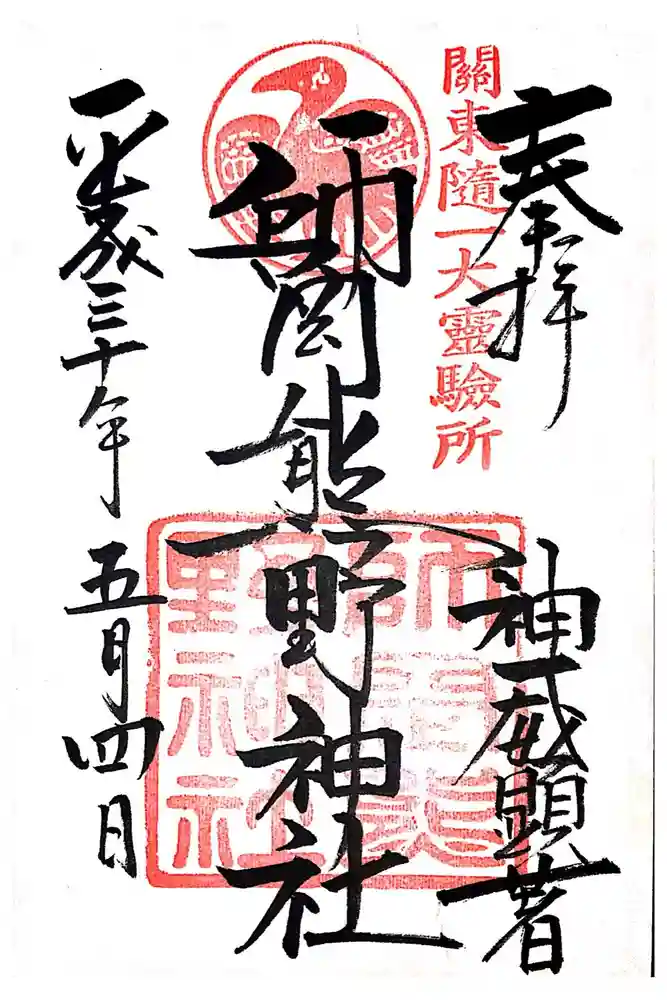 奉拝
神威顕著
關東隨一大靈驗所
師岡熊野神社
平成三十年五月四日